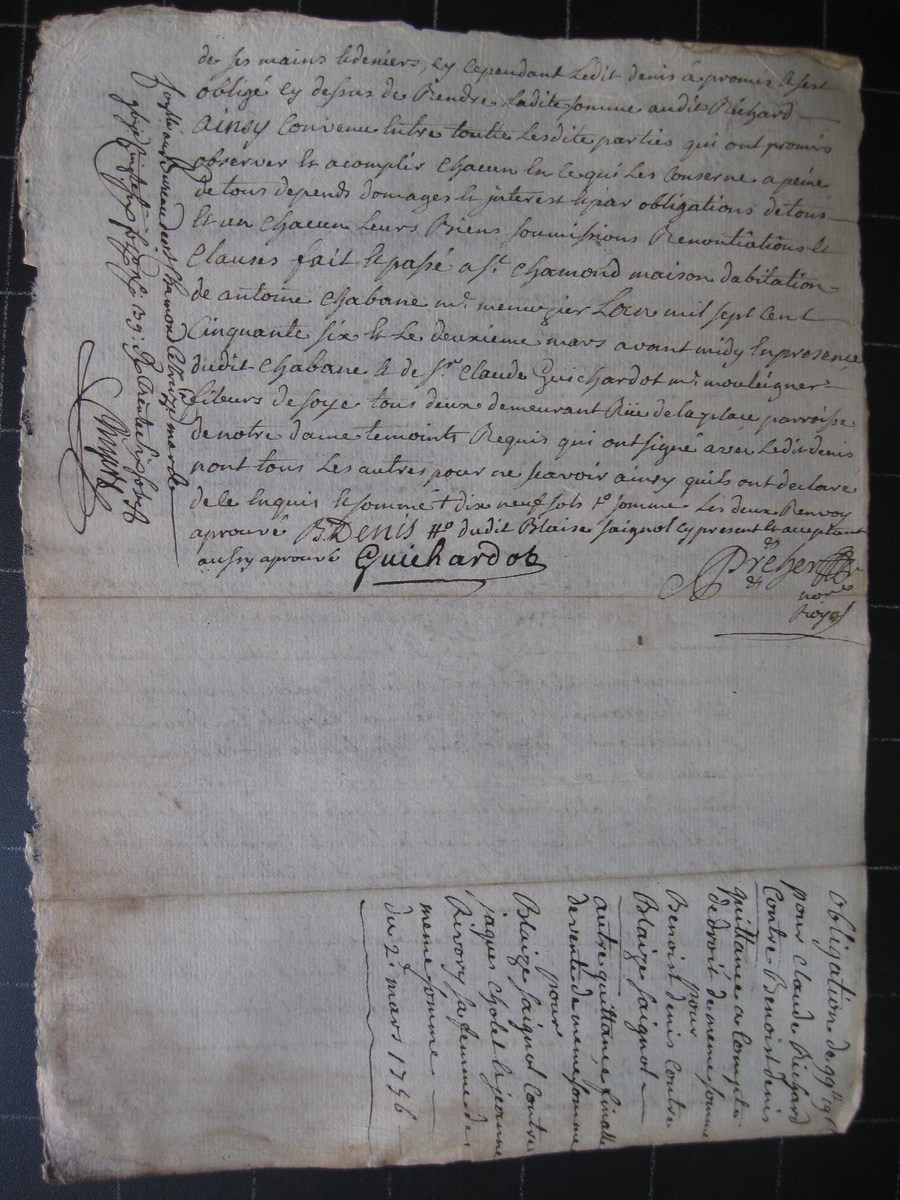 de ses mains & deniers, cy cependant Ledit denis a promis & sest
obligé cy dessus de Rendre Ladite somme audit Richard
ainsy Convenu Entre toutte Lesdite parties qui ont promis
observer Et acomplir chacun En ce qui Les Conserne a peine
de tous depends domages Et interest & par obligations de tous
Et un chacun Leurs Biens soumissions Renontiations Et
Clauses fait & passé a St. chamond maison dabitation
de antoine chabane md. menuzier Lan mil sept Cent
Cinquante six Et Le deuxieme mars avant midy En presence
dudit chabane & de Sr. Claude Guichardot md. moulignier
fileurs de soye tous deux demeurant Rüe de la place parroisse
de notre dame temoints Requis qui ont signé avec Ledit denis
nont tous Les autres pour ne scavoir ainsy quils ont declaré
de ce Enquis & sommé + dix neuf sols somme Les deux Renvoy
aprouvé B. Denis # dudit Blaise saignol cy present Et acceptant
aussy aprouvé Guichardot
notre
Royal
au Bureau de St Chamond mars
obligation de 99tt 19s
pour claude Richard
Contre Benoist denis
quittance a Compte
de droit de meme somme
pour
Benoist denis Contre
Blaize saignol
autre quittance finalle
de vente de meme somme
pour
Blaize saignol Contre
jaques chole le jeune
Rivory sa femme de
meme somme
du 2e mars 1756